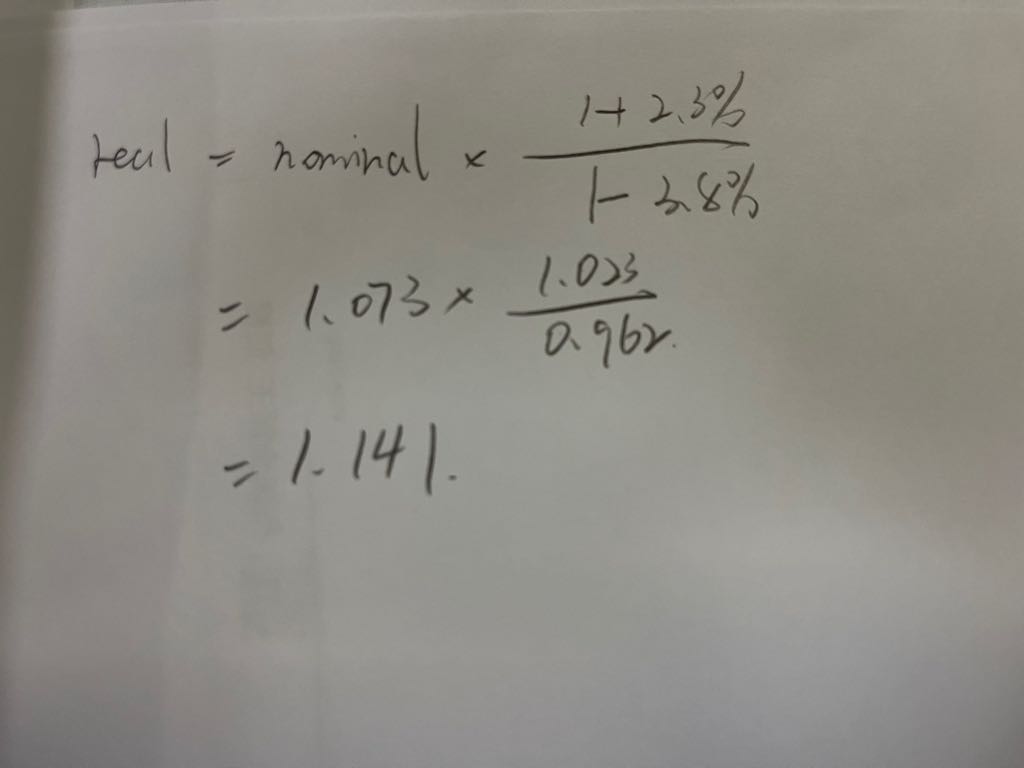 real = nominal × (1+2.3%)/(1-3.8%)
= 1.073 × 1.023/0.962.
= 1.141.